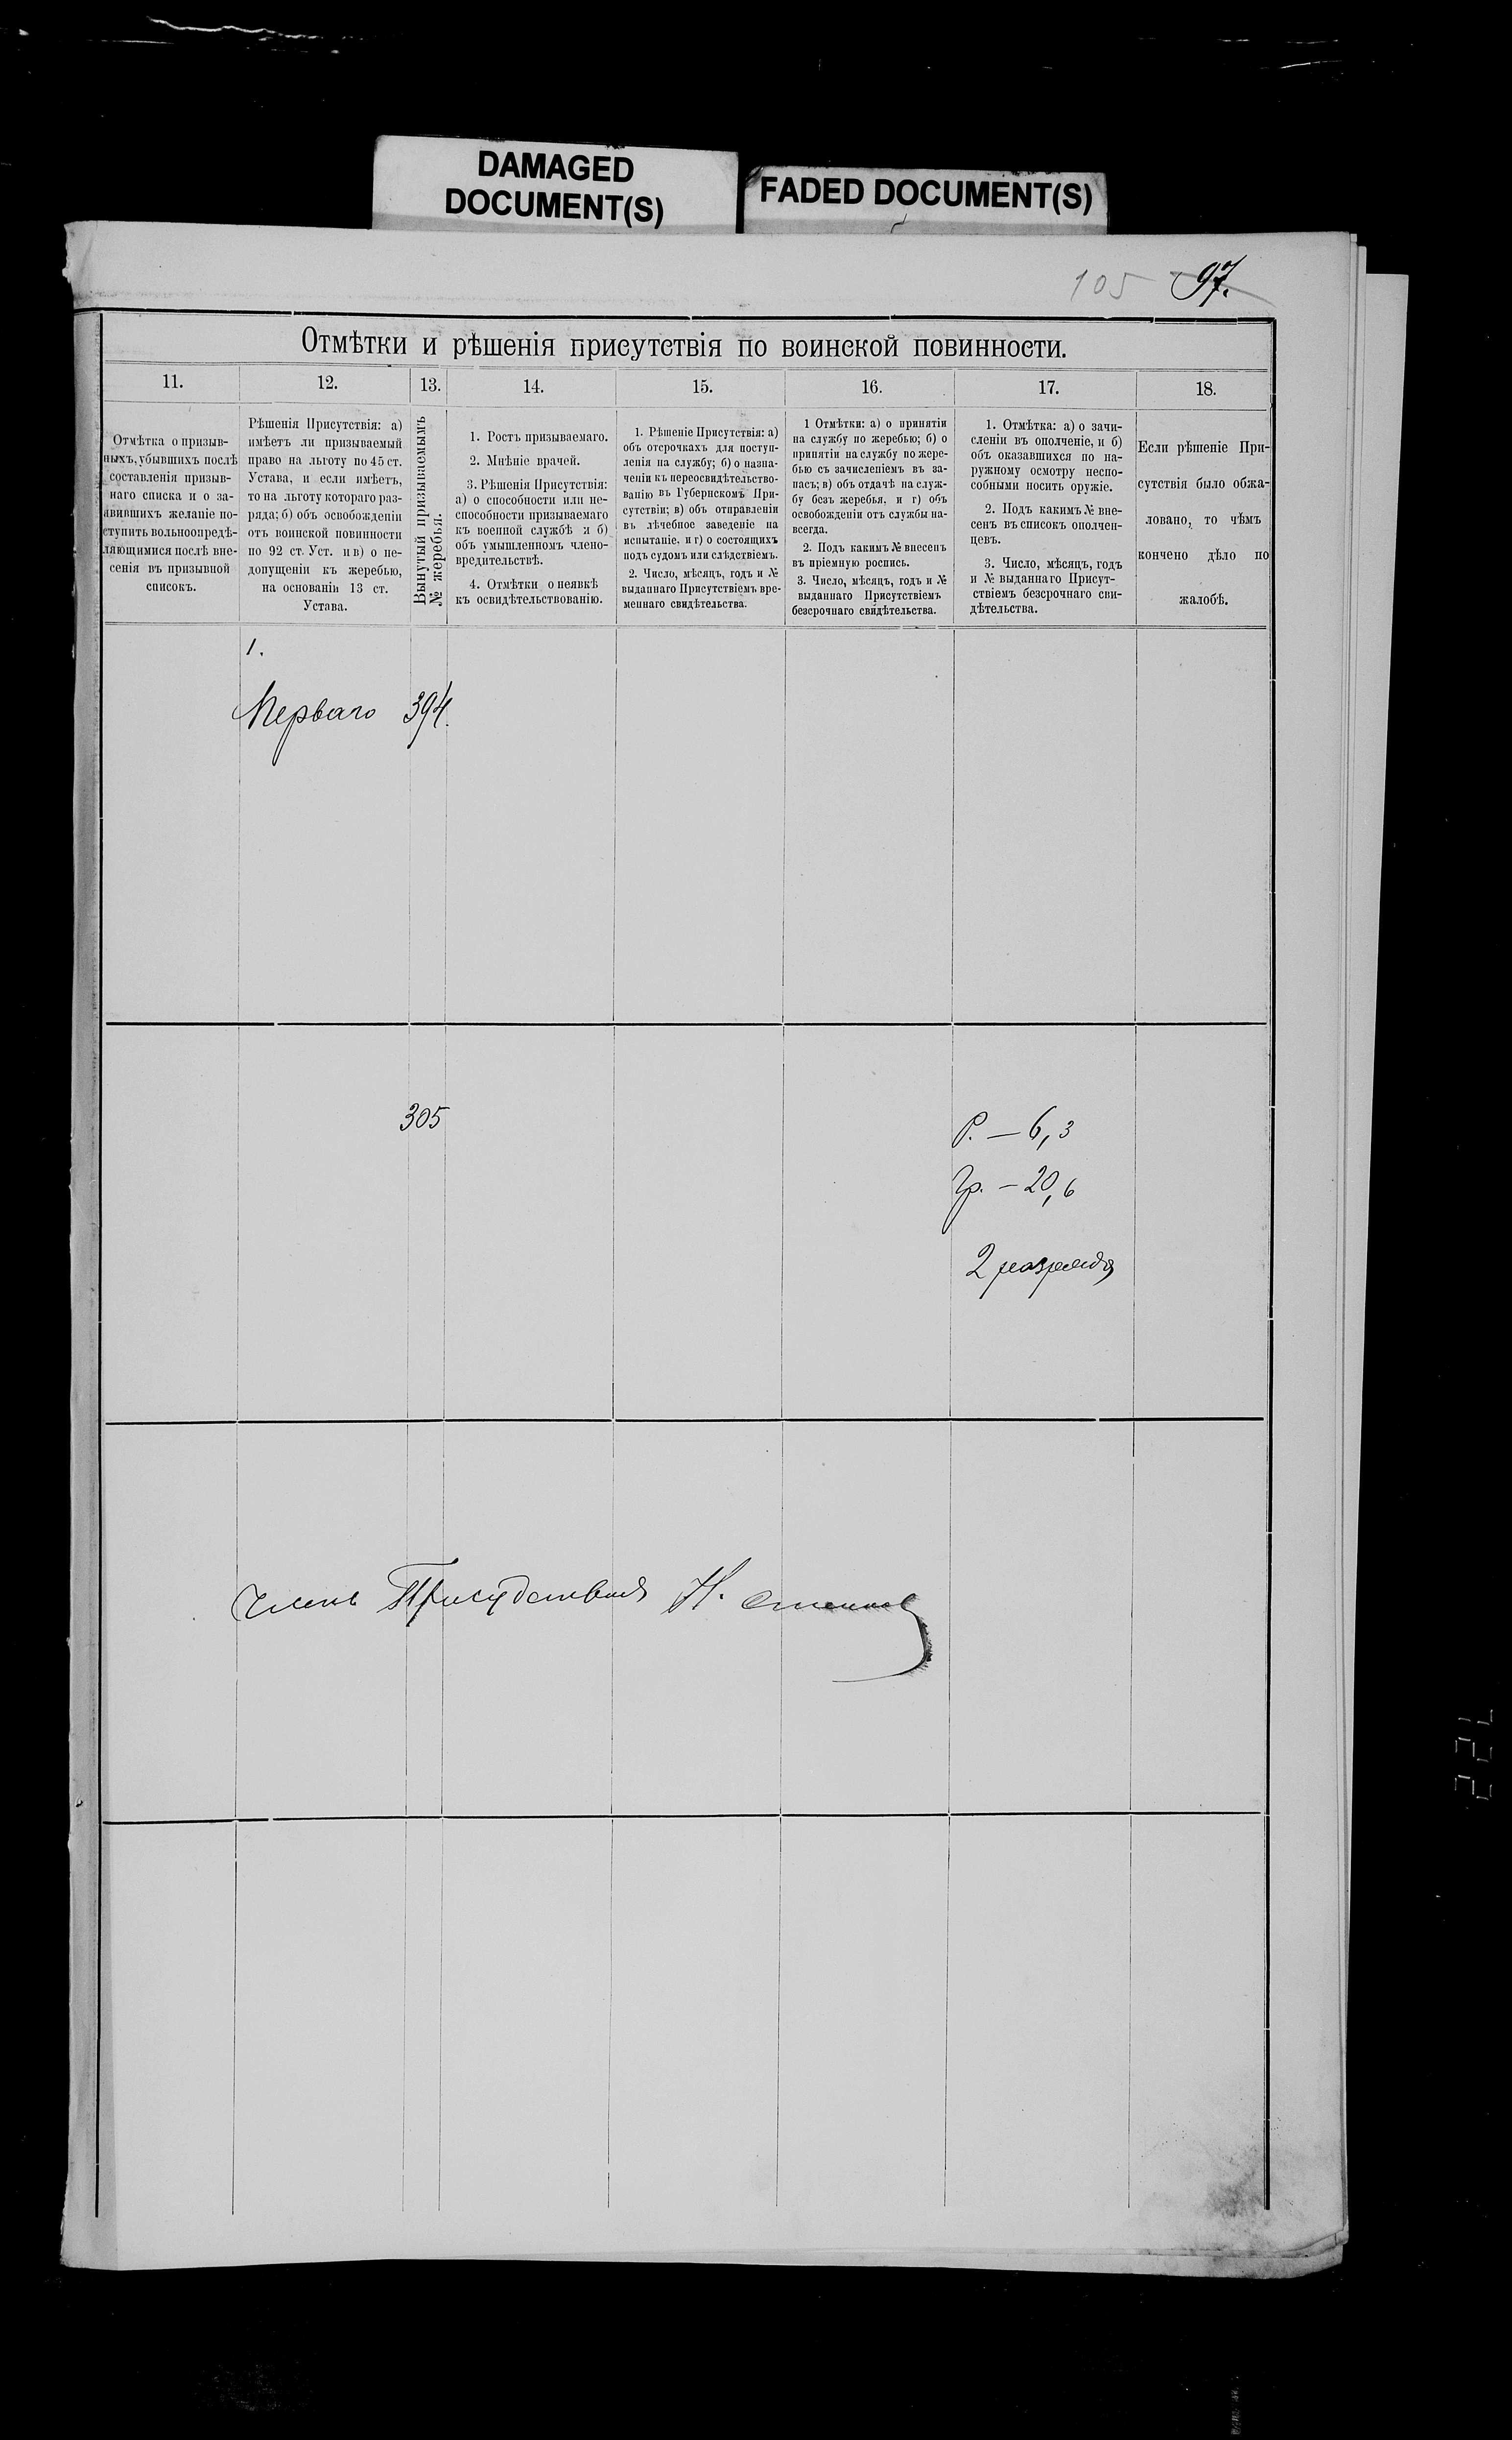 DAMAGED
DOCUMENT(S)
FADED DOCUMENT(S)
105 97.
Отмѣтки и рѣшенія присутствія по воинской повинности.
11.
12.
13.
14.
15.
16.
17.
18.
Отмѣтка о призыв-
ныхъ, убывшихъ послѣ
составленія призыв-
наго списка и о за-
явившихъ желаніе по-
ступить вольноопредѣ-
ляющимися послѣ вне-
сенія въ призывной
списокъ.
Рѣшенія Присутствія: а)
имѣетъ ли призываемый
право на льготу по 45 ст.
Устава, и если имѣетъ,
то на льготу котораго раз-
ряда; б) объ освобожденіи
отъ воинской повинности
по 92 ст. Уст. и в) о не-
допущеніи къ жеребью,
на основаніи 13 ст.
Устава.
Вынутый призываемымъ
№ жеребья.
1. Ростъ призываемаго.
2. Мнѣніе врачей.
3. Рѣшенія Присутствія:
а) о способности или не-
способности призываемаго
къ военной службѣ и б)
объ умышленномъ члено-
вредительствѣ.
4. Отмѣтки о неявкѣ
къ освидѣтельствованію.
1. Рѣшеніе Присутствія: а)
объ отсрочкахъ для поступ-
ленія на службу; б) о назна-
ченіи къ переосвидѣтельство-
ванію въ Губернскомъ При-
сутствіи; в) объ отправленіи
въ лѣчебное заведеніе на
испытаніе, и г) о состоящихъ
подъ судомъ или слѣдствіемъ.
2. Число, мѣсяцъ, годъ и №
выданнаго Присутствіемъ вре-
меннаго свидѣтельства.
1 Отмѣтки: а) о принятіи
на службу по жеребью; б) о
принятіи на службу по жере-
бью съ зачисленіемъ въ за-
пасъ; в) объ отдачѣ на служ-
бу безъ жеребья, и г) объ
освобожденіи отъ службы на-
всегда.
2. Подъ какимъ № внесенъ
въ пріемную роспись.
3. Число, мѣсяцъ, годъ и №
выданнаго Присутствіемъ
безсрочнаго свидѣтельства.
1. Отмѣтка: а) о зачи-
сленіи въ ополченіе, и б)
объ оказавшихся по на-
ружному осмотру неспо-
собными носить оружіе.
2. Подъ какимъ № вне-
сенъ въ списокъ ополчен-
цевъ.
3. Число, мѣсяцъ, годъ
и № выданнаго Присут-
ствіемъ безсрочнаго сви-
дѣтельства.
Если рѣшеніе При-
сутствія было обжа-
ловано, то чѣмъ
кончено дѣло по
жалобѣ.
1.
Перваго 394.
305
Р. — 6,3
Гр. — 20,6
2 разряда
Членъ Присудствія Н.
722